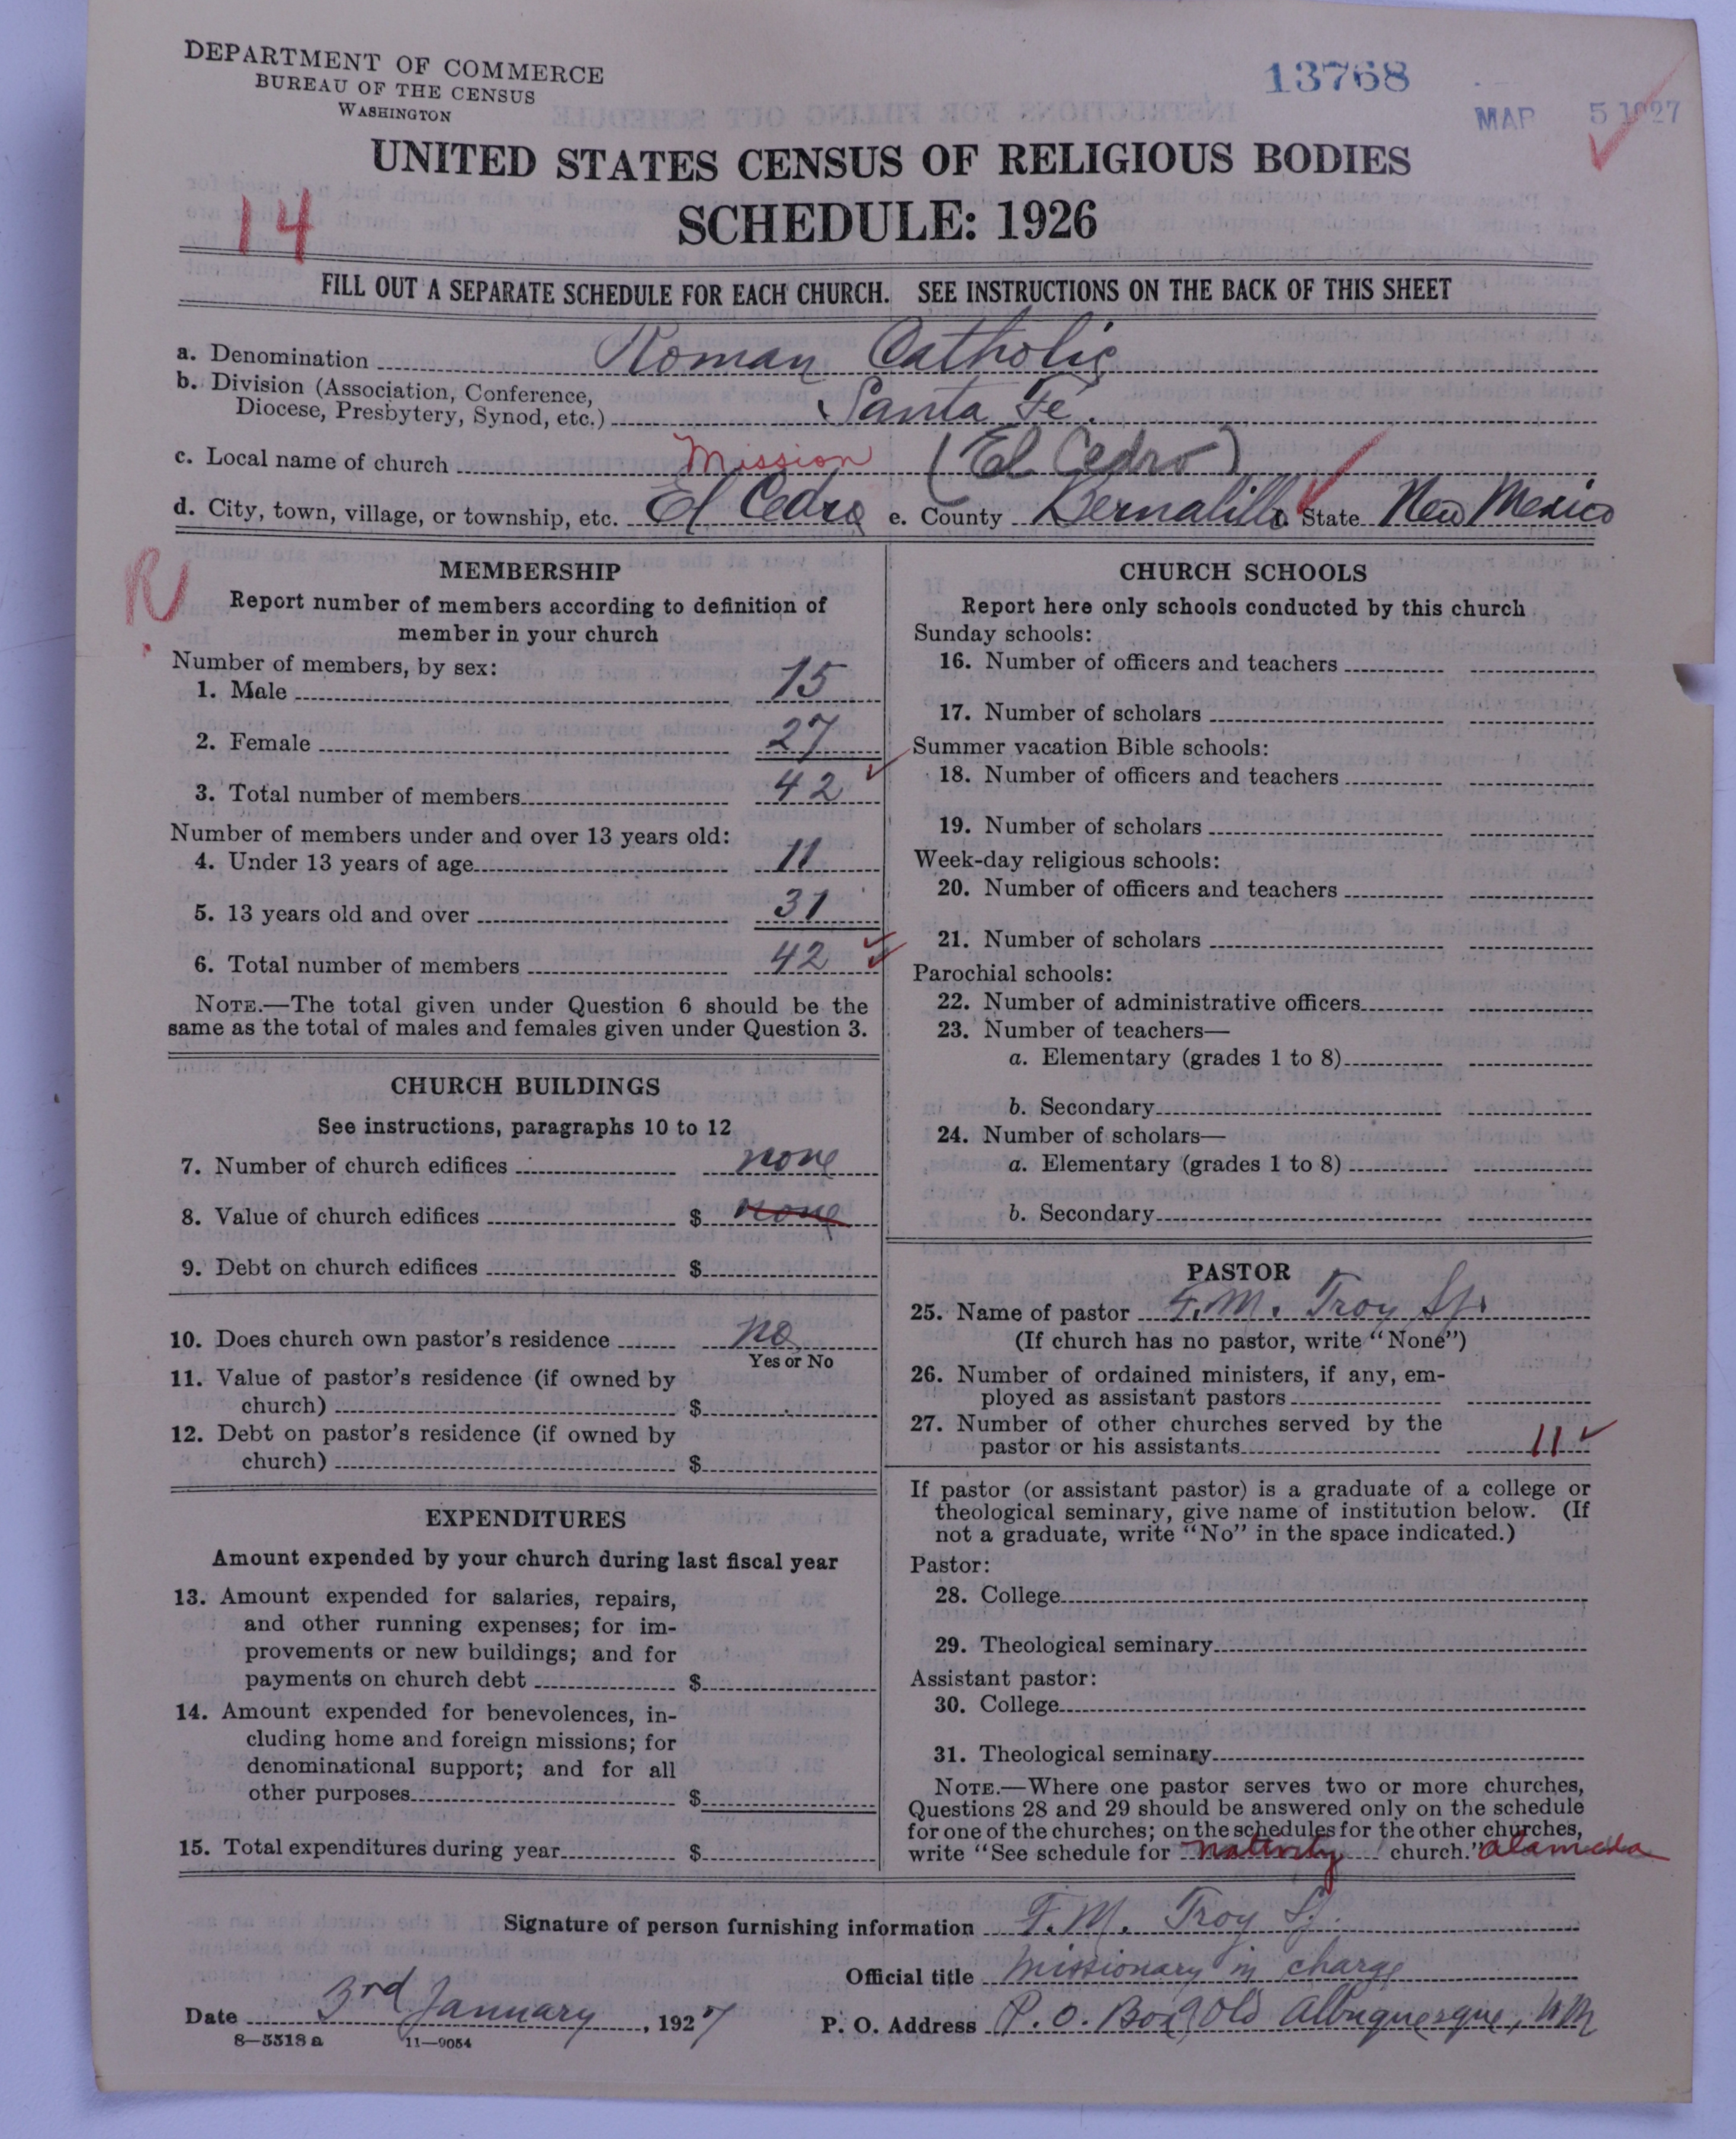 DEPARTMENT OF COMMERCE
BUREAU OF THE CENSUS
WASHINGTON
13768
MAR 5 1927
UNITED STATES CENSUS OF RELIGIOUS BODIES
14
SCHEDULE: 1926
FILL OUT A SEPARATE SCHEDULE FOR EACH CHURCH. SEE INSTRUCTIONS ON THE BACK OF THIS SHEET
a. Denomination Roman Catholic
b. Division (Association, Conference,
Diocese, Presbytery, Synod, etc.) Santa Fe.
c. Local name of church Mission (El Cedro)
d. City, town, village, or township, etc. El Cedro e. County Bernalillo f. State New Mexico
R
MEMBERSHIP
Report number of members according to definition of
member in your church
Number of members, by sex:
1. Male 15
2. Female 27
3. Total number of members 42
Number of members under and over 13 years old:
4. Under 13 years of age 11
5. 13 years old and over 31
6. Total number of members 42
NOTE.—The total given under Question 6 should be the
same as the total of males and females given under Question 3.
CHURCH BUILDINGS
See instructions, paragraphs 10 to 12
7. Number of church edifices none
8. Value of church edifices $ none
9. Debt on church edifices $
10. Does church own pastor's residence no
Yes or No
11. Value of pastor's residence (if owned by
church) $
12. Debt on pastor's residence (if owned by
church) $
EXPENDITURES
Amount expended by your church during last fiscal year
13. Amount expended for salaries, repairs,
and other running expenses; for im-
provements or new buildings; and for
payments on church debt $
14. Amount expended for benevolences, in-
cluding home and foreign missions; for
denominational support; and for all
other purposes $
15. Total expenditures during year $
CHURCH SCHOOLS
Report here only schools conducted by this church
Sunday schools:
16. Number of officers and teachers
17. Number of scholars
Summer vacation Bible schools:
18. Number of officers and teachers
19. Number of scholars
Week-day religious schools:
20. Number of officers and teachers
21. Number of scholars
Parochial schools:
22. Number of administrative officers
23. Number of teachers—
a. Elementary (grades 1 to 8)
b. Secondary
24. Number of scholars—
a. Elementary (grades 1 to 8)
b. Secondary
PASTOR
25. Name of pastor F. M. Troy SJ.
(If church has no pastor, write "None")
26. Number of ordained ministers, if any, em-
ployed as assistant pastors
27. Number of other churches served by the
pastor or his assistants 11
If pastor (or assistant pastor) is a graduate of a college or
theological seminary, give name of institution below. (If
not a graduate, write "No" in the space indicated.)
Pastor:
28. College
29. Theological seminary
Assistant pastor:
30. College
31. Theological seminary
NOTE.—Where one pastor serves two or more churches,
Questions 28 and 29 should be answered only on the schedule
for one of the churches; on the schedules for the other churches,
write "See schedule for nativity church." alameda
Signature of person furnishing information F. M. Troy SJ.
Official title missionary in charge
Date 3rd January, 1927 P. O. Address P. O. Box 9, Old Albuquerque, NM
8—5518 a 11—9054